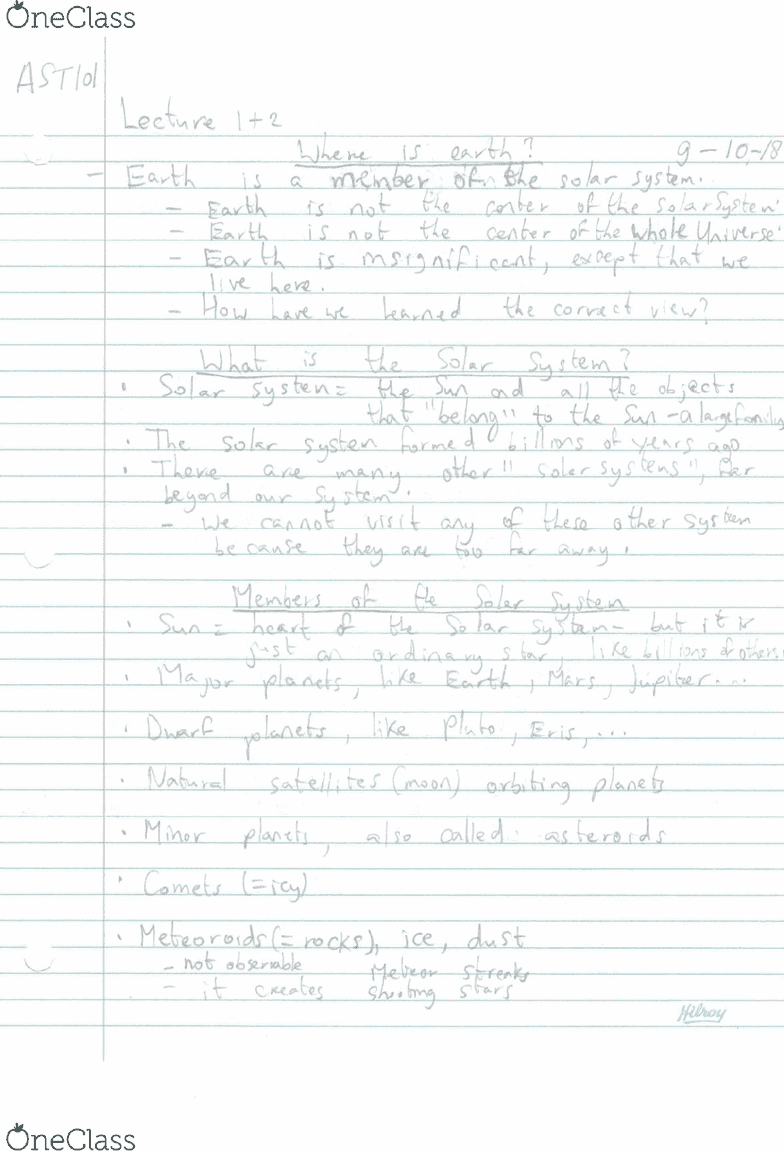 OneClass
AST101
Lecture 1+2
Where is earth? 9-10-18
- Earth is a member of the solar system.
- Earth is not the center of the Solar System.
- Earth is not the center of the whole Universe.
- Earth is insignificant, except that we
live here.
- How have we learned the correct view?
What is the Solar System?
• Solar system = the Sun and all the objects
that "belong" to the Sun - a large family
• The solar system formed billions of years ago
• There are many other "solar systems", far
beyond our system.
- We cannot visit any of these other system
because they are too far away.
Members of the Solar System
• Sun = heart of the Solar system - but it is
just an ordinary star, like billions of others.
• Major planets, like Earth, Mars, Jupiter...
• Dwarf planets, like Pluto, Eris, ...
• Natural satellites (moon) orbiting planets
• Minor planets, also called: asteroids
• Comets (=icy)
• Meteoroids (= rocks), ice, dust
- not observable Meteor streaks
- it creates shooting stars
Hilroy
OneClass